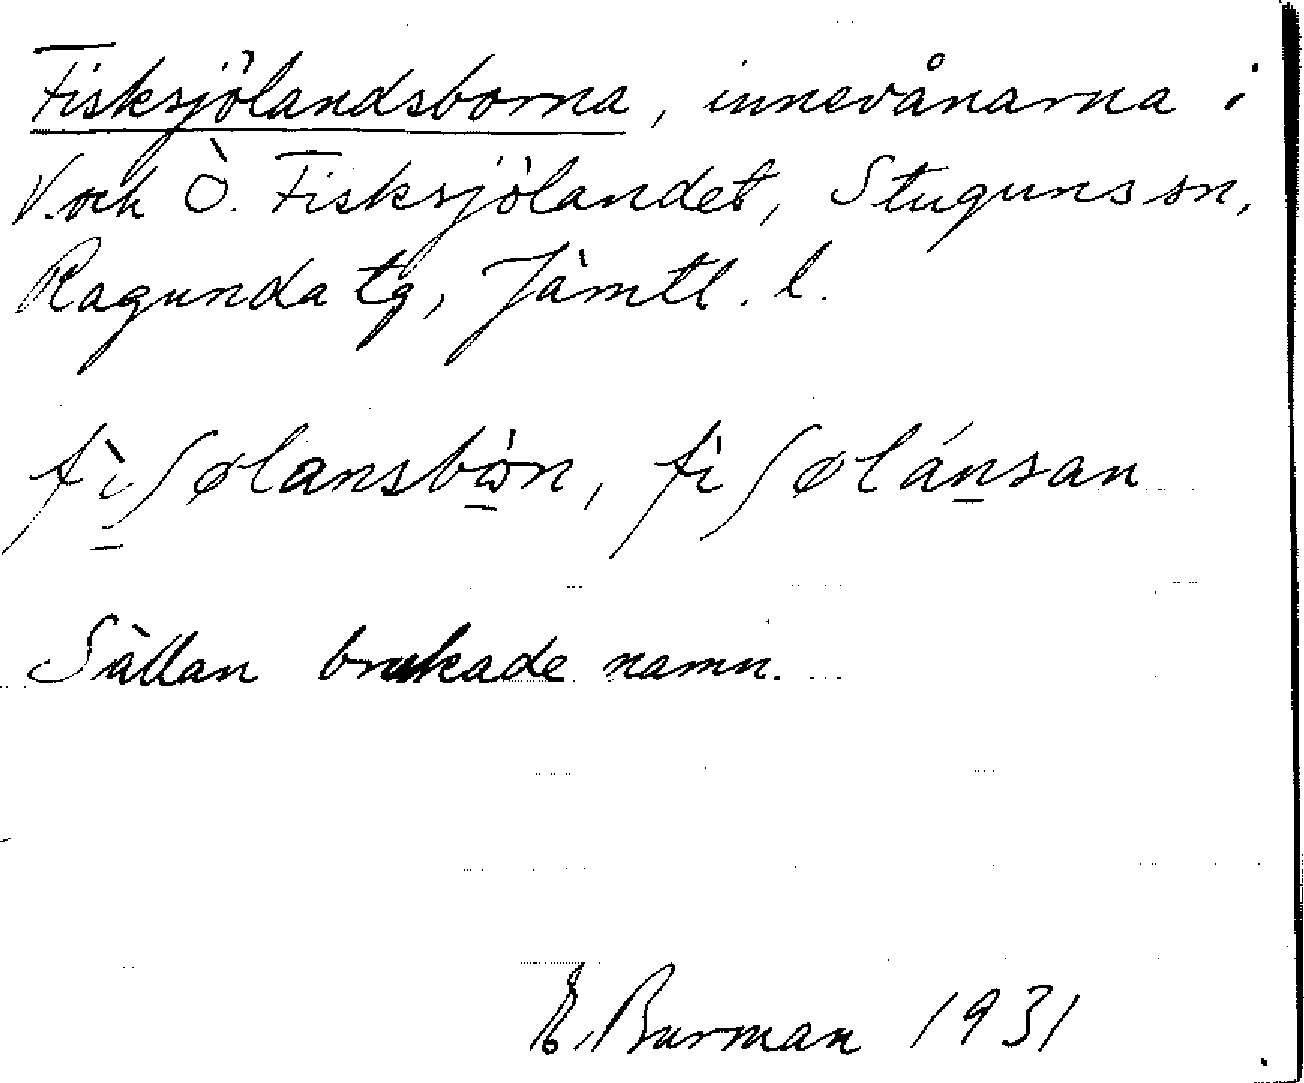 Fisksjölandsborna, innevånarna i
V. och Ö. Fisksjölandet, Stuguns sn,
Ragunda tg, Jämtl. l.
fìʃølansbòn, fìʃølánsan
Sällan brukade namn.
E. Burman 1931